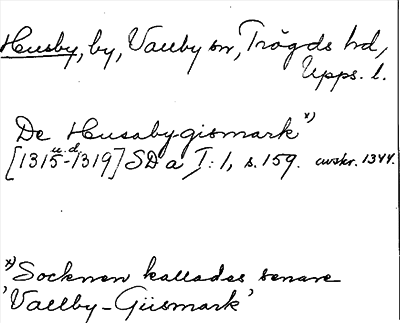 Husby, by, Vallby sn, Trögds hd,
Upps. l.
De Husabygismark x)
u.d.
[1315-1319] SD a I: 1, s. 159. avskr. 1344.
x) Socknen kallades senare
'Vallby-Giismark'